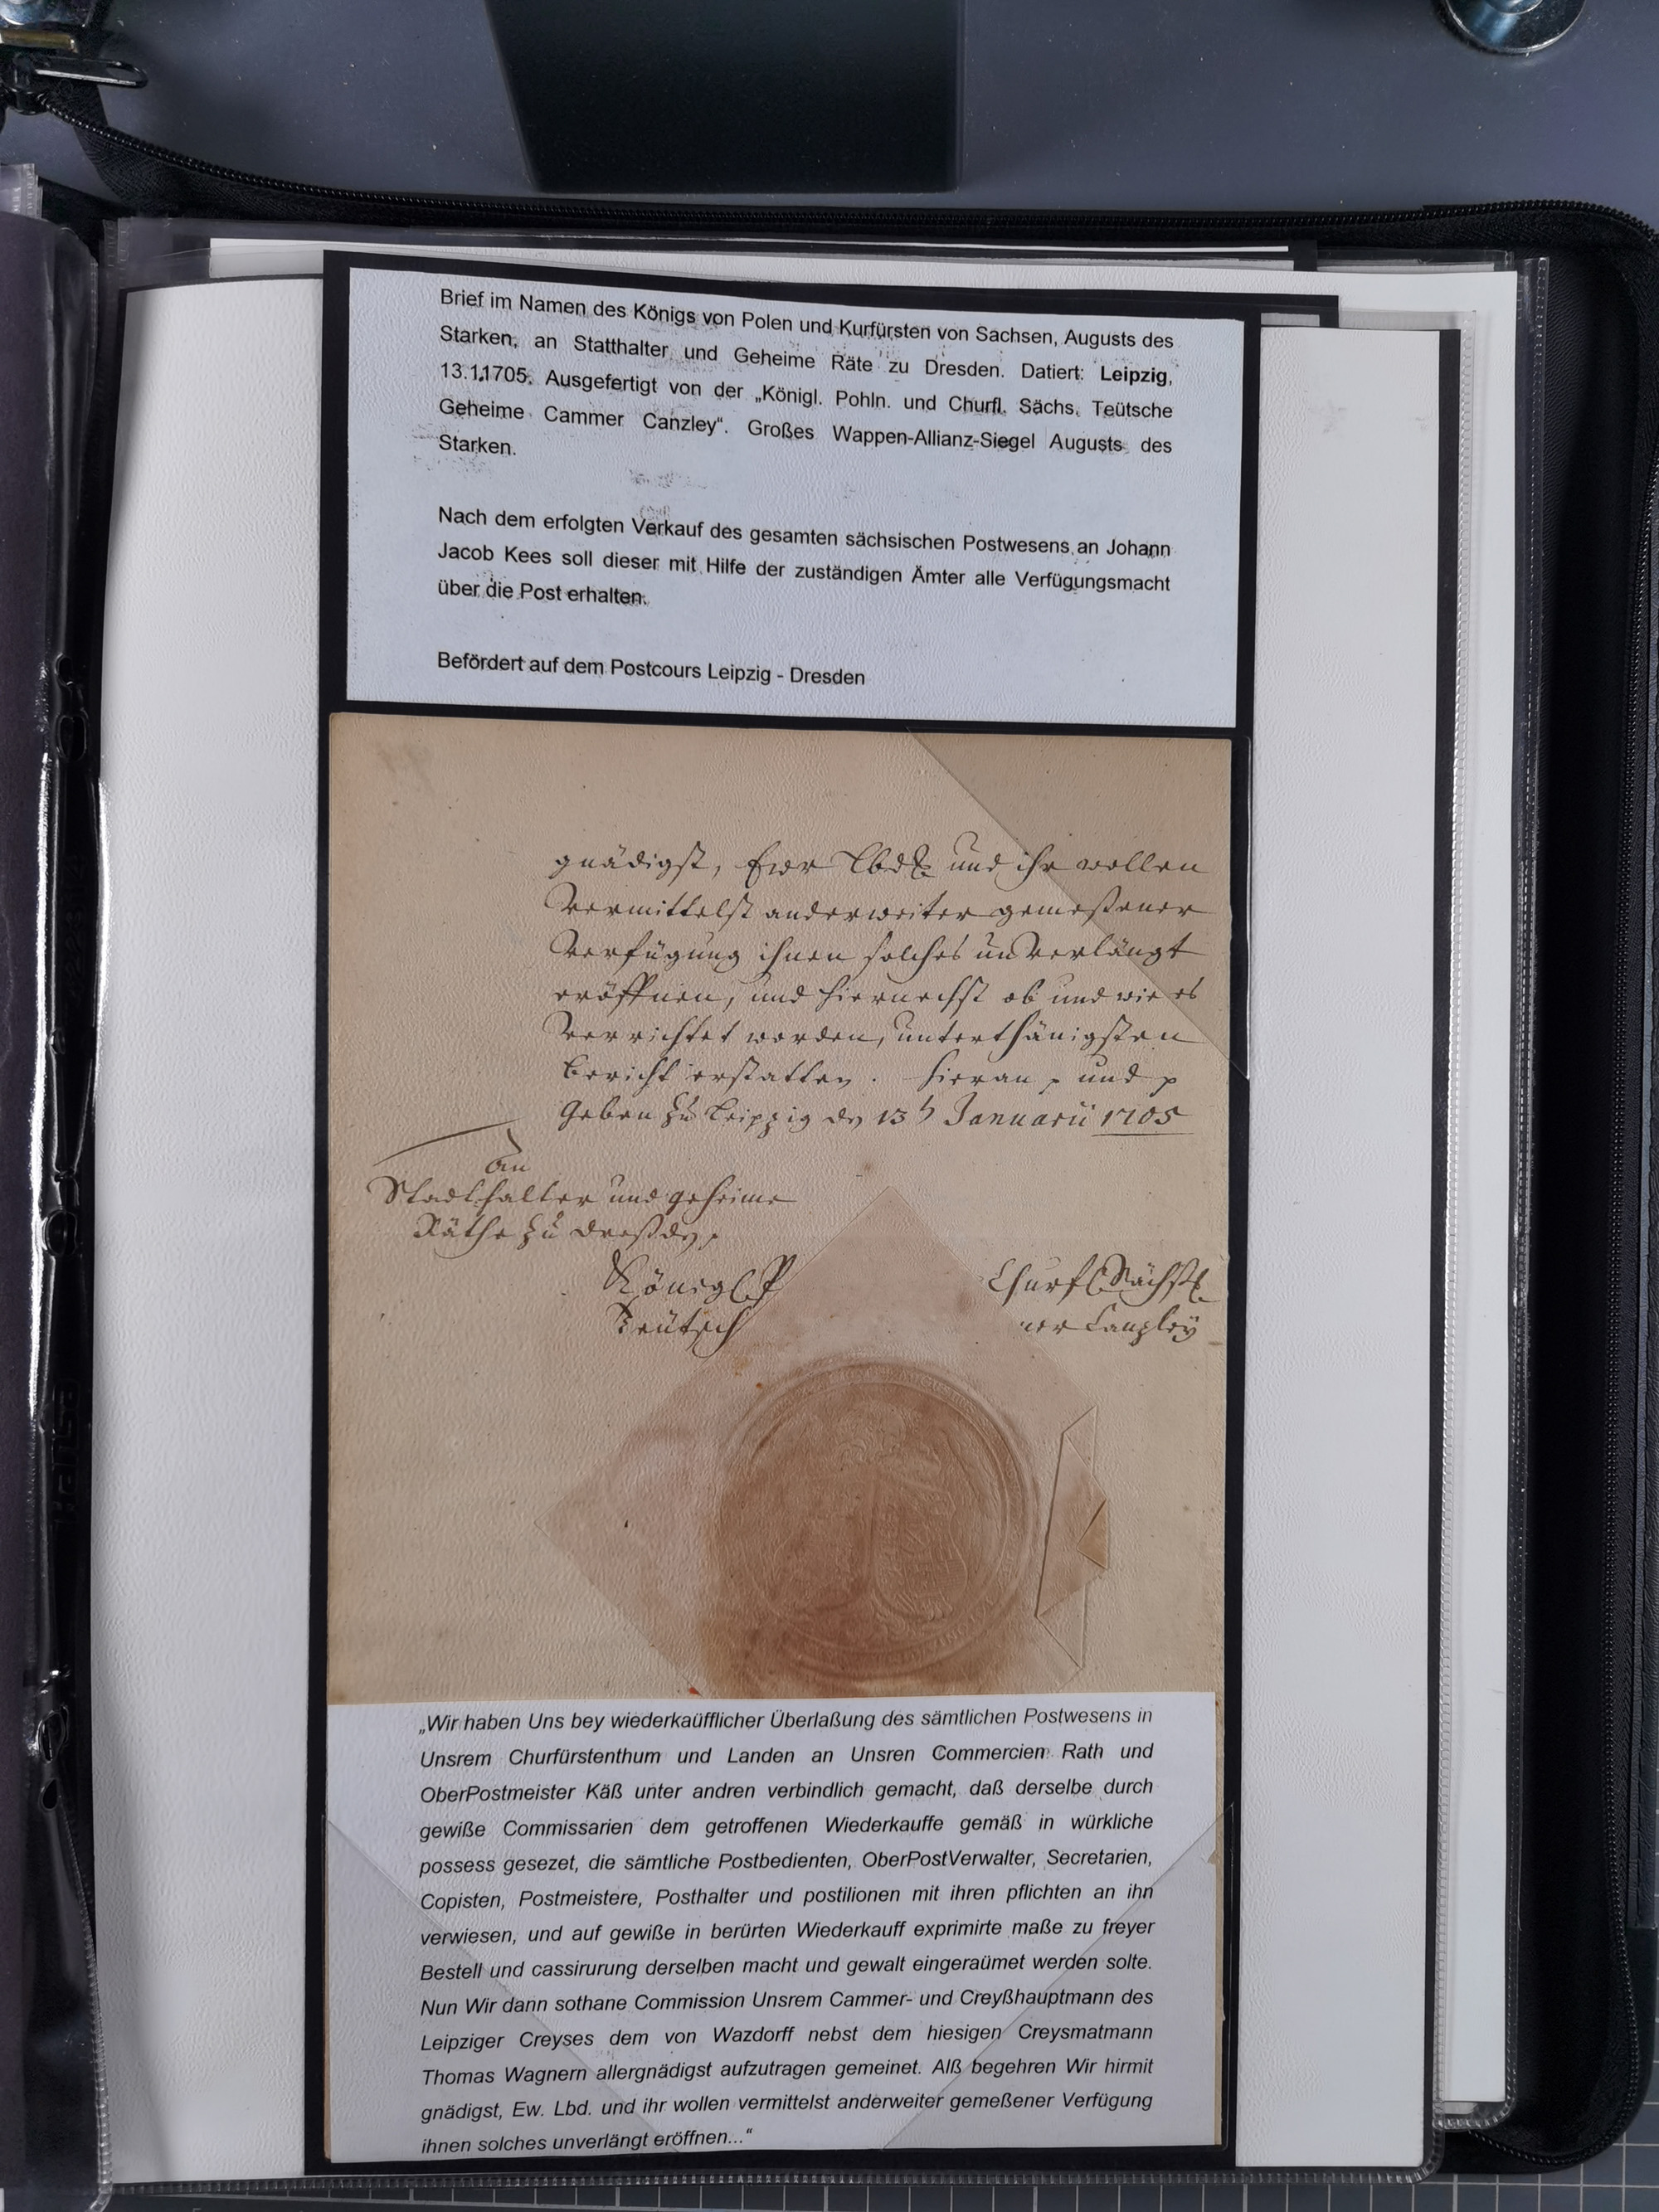 Brief im Namen des Königs von Polen und Kurfürsten von Sachsen, Augusts des
Starken, an Statthalter und Geheime Räte zu Dresden. Datiert: Leipzig,
13.1.1705. Ausgefertigt von der „Königl. Pohln. und Churfl. Sächs. Teütsche
Geheime Cammer Canzley“. Großes Wappen-Allianz-Siegel Augusts des
Starken.
Nach dem erfolgten Verkauf des gesamten sächsischen Postwesens an Johann
Jacob Kees soll dieser mit Hilfe der zuständigen Ämter alle Verfügungsmacht
über die Post erhalten.
Befördert auf dem Postcours Leipzig - Dresden
gnädigst, Ewr Lbd. und ihr wollen
vermittelst anderweiter gemeßener
Verfügung ihnen solches unverlängt
eröffnen, und hiernechst ob und wie es
verrichtet worden, unterthänigsten
Bericht erstatten. Hieran, und
Geben zu Leipzig den 13 Januarii 1705
An
Stadthalter und geheime
Räthe zu Dreßden,
Königl. P Churfl. Sächß.
Teütsch ner Canzley
„Wir haben Uns bey wiederkaüfflicher Überlaßung des sämtlichen Postwesens in
Unsrem Churfürstenthum und Landen an Unsren Commercien Rath und
OberPostmeister Käß unter andren verbindlich gemacht, daß derselbe durch
gewiße Commissarien dem getroffenen Wiederkauffe gemäß in würkliche
possess gesezet, die sämtliche Postbedienten, OberPostVerwalter, Secretarien,
Copisten, Postmeistere, Posthalter und postilionen mit ihren pflichten an ihn
verwiesen, und auf gewiße in berürten Wiederkauff exprimirte maße zu freyer
Bestell und cassirurung derselben macht und gewalt eingeraümet werden solte.
Nun Wir dann sothane Commission Unsrem Cammer- und Creyßhauptmann des
Leipziger Creyses dem von Wazdorff nebst dem hiesigen Creysmatmann
Thomas Wagnern allergnädigst aufzutragen gemeinet. Alß begehren Wir hirmit
gnädigst, Ew. Lbd. und ihr wollen vermittelst anderweiter gemeßener Verfügung
ihnen solches unverlängt eröffnen...“